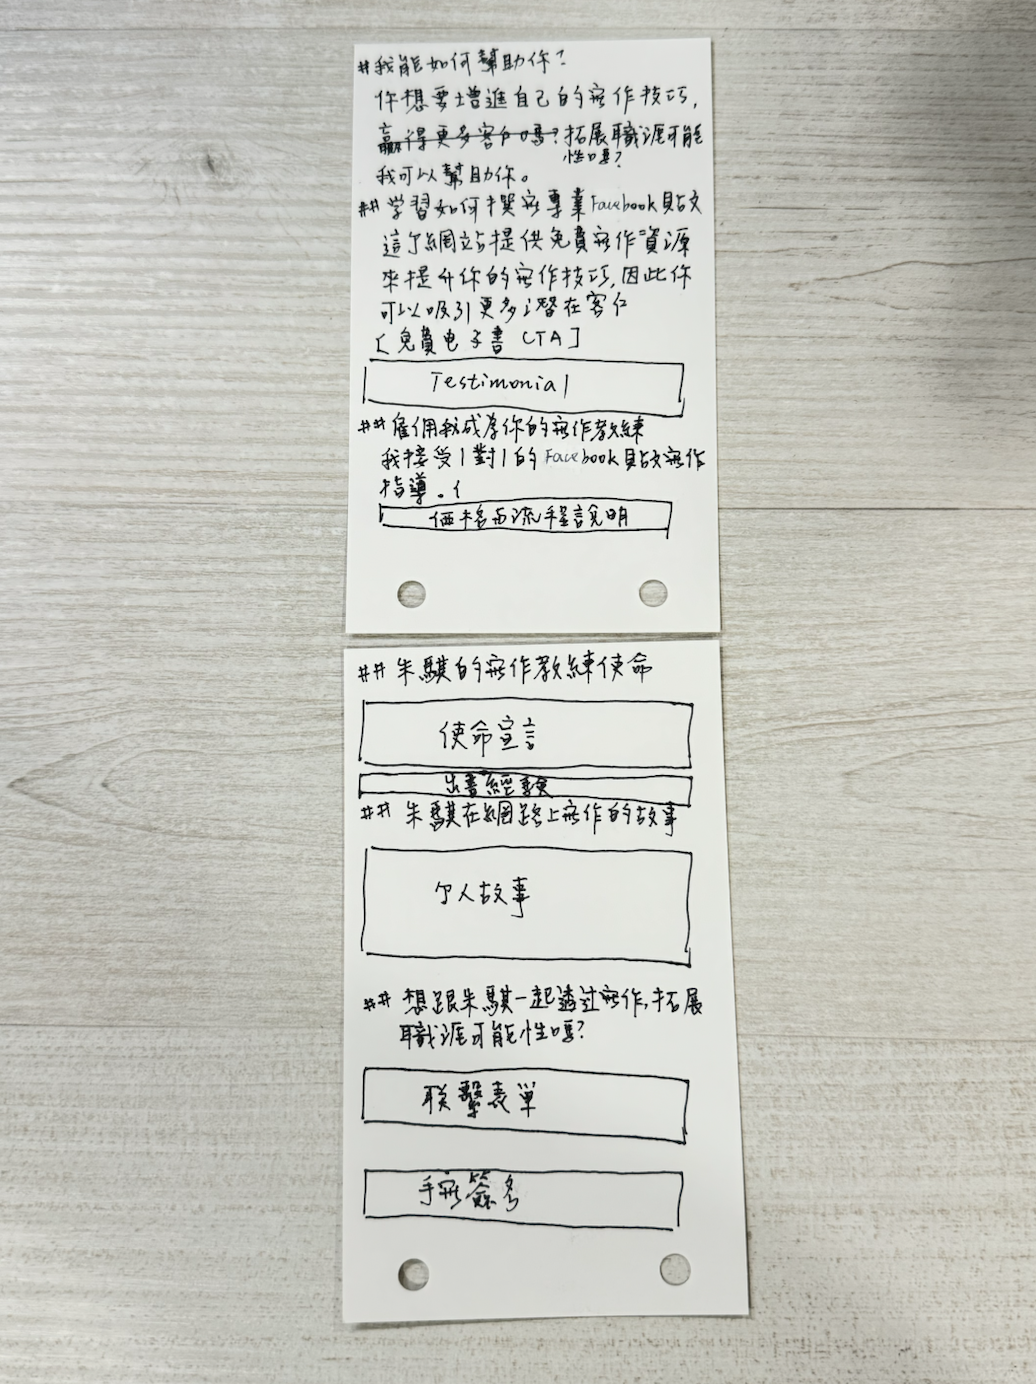 #我能如何幫助你?
你想要增進自己的寫作技巧,
贏得更多客戶嗎?拓展職涯可能
性嗎?
我可以幫助你。
##學習如何撰寫專業Facebook貼文
這个網站提供免費寫作資源
來提升你的寫作技巧,因此你
可以吸引更多潛在客仁
[免費电子書 CTA]
Testimonial
##雇佣我成為你的寫作教練
我接受1對1的Facebook貼文寫作
指導。(
価格与流程說明
##朱騏的寫作教練使命
使命宣言
出書經驗
##朱騏在網路上寫作的故事
个人故事
##想跟朱騏一起透过寫作,拓展
職涯可能性嗎?
联繫表单
手寫簽名